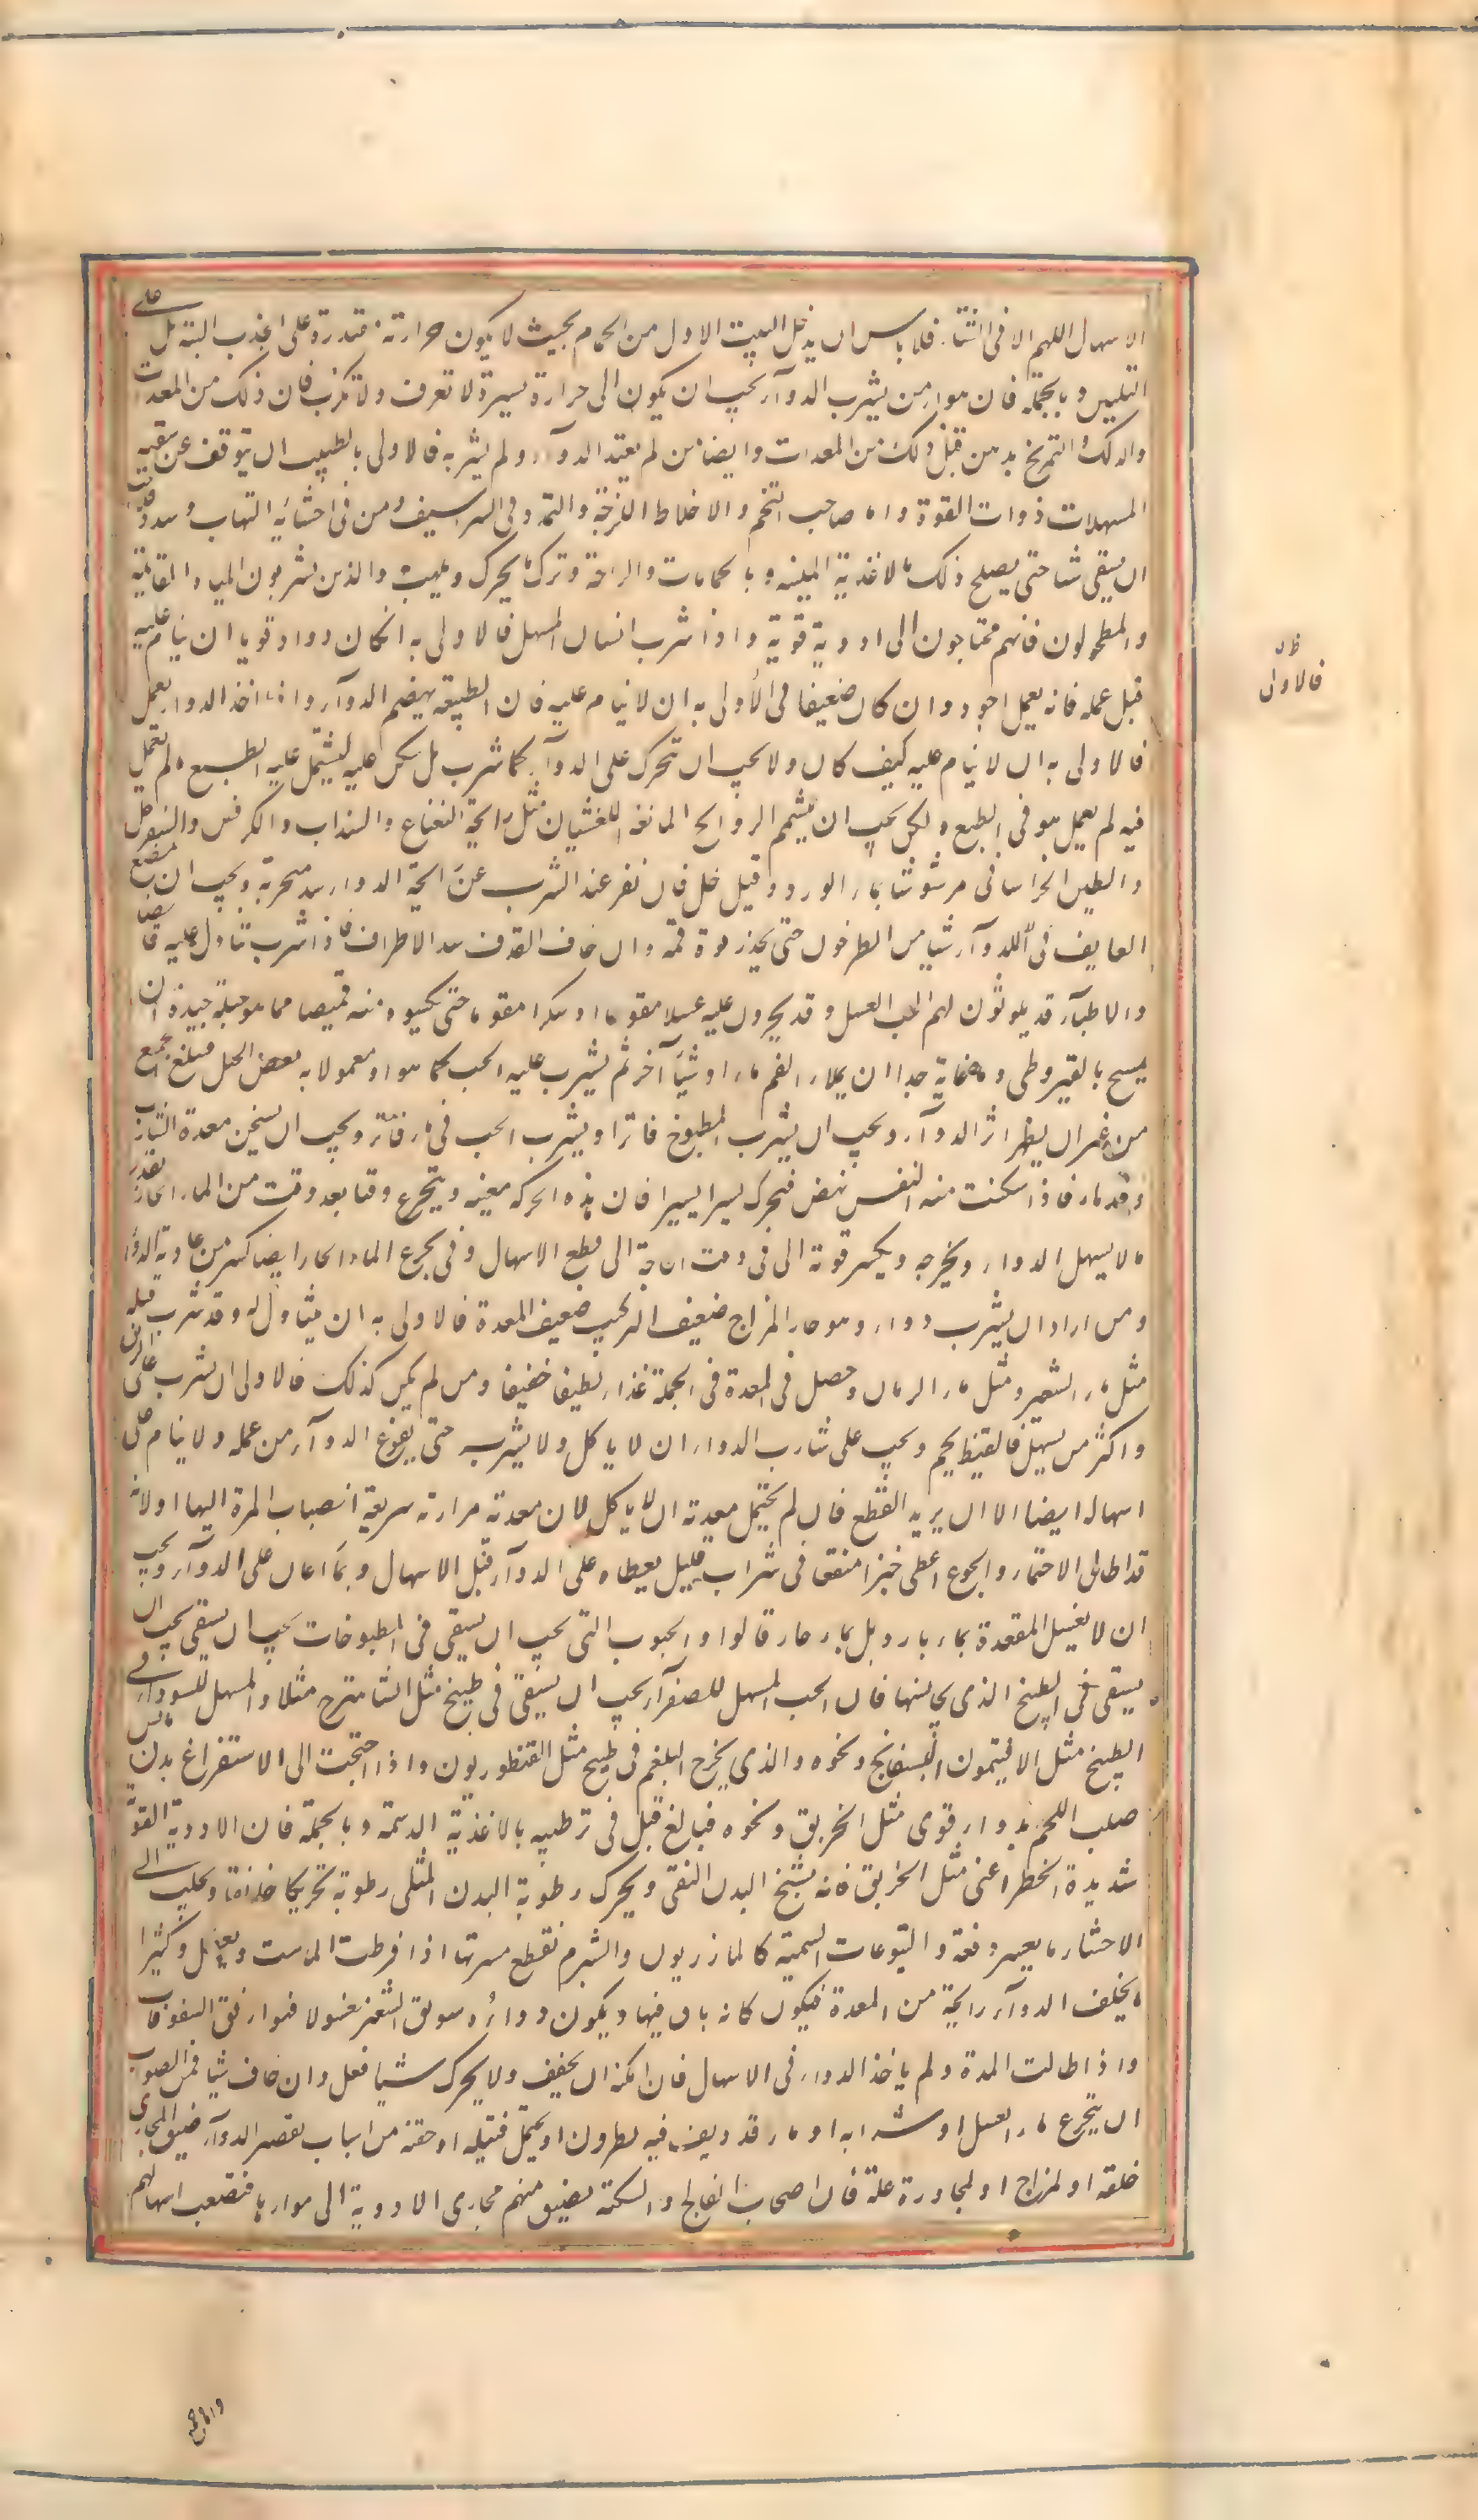 الاسهال اللهم الا فى الشتاء فلا باس ان يدخل البيت الاول من الحمام بحيث لا يكون حرارته مقتدرة على الجذب البتة بل على
التليين وبالجملة فان هواء من يشرب الدواء يجب ان يكون الى حرارة يسيرة لا تعرق ولا تكرب فان ذلك من المعدات
والدلك والتمريخ بدهن قبل ذلك من المعدات وايضا من لم يعتد الدواء ولم يشربه فالاولى بالطبيب ان يتوقف عن سقيه
المسهلات ذوات القوة واما صاحب التخم والاخلاط اللزجة والتمدد فى الشراسيف ومن فى احشائه التهاب وسدد فيجب
ان يسقى شيا حتى يصلح ذلك بالاغذية الملينه وبالحمامات والراحة وترك ما يحرك ويلهب والذين يشربون المياه القائمة
والمطحولون فانهم محتاجون الى ادوية قوية واذا شرب انسان المسهل فالاولى به انكان دواء قويا ان ينام عليه
قبل عمله فانه يعمل اجود وان كان ضعيفا فى الأولى به ان لا ينام عليه فان الطبيعة يهضم الدواء واذا اخذ الدواء يعمل
فالاولى به ان لا ينام عليه كيف كان ولا يجب ان تحرك على الدواء كما شرب بل يسكن عليه ليشتمل عليه الطبع
فيه لم يعمل هو فى الطبع ولكن يجب ان يشتم الروايح المانعة للغشيان مثل رايحة النعناع والسذاب والكرفس والسفرجل
والطين الخراسانى مرشوشا بماء الورد وقيل خل فان نفر عند الشرب عن رايحة الدواء سد منخريه ويجب ان يمضغ
العايف للدواء شيا من الطرخون حتى يخدر قوة فمه وان خاف القذف سد الاطراف فاذا شرب تناول عليه قابضا
والاطباء قد يلوثون لهم الحب العسل وقد يجرون عليه عسلا مقوما او سكرا مقوما حتى يكسوه منه قميصا مما هو حيلة جيدة ان
يمسح بالقيروطى وما هو غاية جدا ان يملاء الفم ماء او شيئا آخر ثم يشرب عليه الحب كما هو او معمولا به بعض الحيل فيبلغ الجميع
من غير ان يظهر اثر الدواء ويجب ان يشرب المطبوخ فاترا ويشرب الحب فى ماء فاتر ويجب ان يسخن معدة الشارب
وقدماه فاذا سكنت منه النفس نهض فتحرك يسيرا يسيرا فان هذه الحركة معينه ويتجرع وقتا بعد وقت من الماء الحار بقدر
ما لا يسهل الدواء ويخرجه ويكسر قوته الا فى وقت الحاجة الى قطع الاسهال وفى تجرع الماء الحار ايضا كسر من عادية الدواء
ومن اراد ان يشرب دواء وهو حار المزاج ضعيف التركيب ضعيف المعدة فالاولى به ان يتناوله وقد شرب قبله
مثل ماء الشعير ومثل ماء الرمان وحصل فى المعدة فى الجملة غذاء لطيفا خفيفا ومن لم يكن كذلك فالاولى ان يشرب على الريق
واكثر من يسهل فى القيظ يحم ويجب على شارب الدواء ان لا ياكل ولا يشرب حتى يفرغ الدواء من عمله ولا ينام على
اسهاله ايضا الا ان يريد القطع فان لم يحتمل معدته ان لا ياكل لان معدته مرارته سريعة انصباب المرة اليها او لانه
قد اطال الاحتماء والجوع اعطى خبزا منقعا فى شراب قليل يعطاه على الدواء قبل الاسهال وربما اعان على الدواء ويجب
ان لا يغسل المقعدة بماء بارد بل بماء حار قالوا والحبوب التى يجب ان يسقى فى المطبوخات يجب ان يسقى يجب ان
يسقى فى الطبيخ الذى يجانسها فان الحب المسهل للصفراء يجب ان يسقى فى طبيخ مثل الشاهترج مثلا والمسهل للسوداء فى
الطبيخ مثل الافتيمون البسفايج ونحوه والذى يخرج البلغم فى طبيخ مثل القنطوريون واذا احتجت الى الاستفراغ بدن يابس
صلب اللحم بدواء قوى مثل الخربق ونحوه فبالغ قبل فى ترطيبه بالاغذية الدسمة وبالجملة فان الادوية القوية
شديدة الخطر اعنى مثل الخربق فانه يشنج البدن النقى ويحرك رطوبة البدن الممتلى رطوبة تحريكا خانقا ويجلب الى
الاحشاء ما يعسر دفعه واليتوعات السمية كالمازريون والشبرم نقطع مضرتها اذا افرطت الماست وكثيرا
ما يخلف الدواء رايحة من المعدة فيكون كانه باق فيها ويكون دواؤه سويق الشعير مغسولا فهو اوفق السفوفات
واذا طالت المدة ولم ياخذ الدواء فى الاسهال فان امكنه ان يخفف ولا يحرك شيا فعل وان خاف شيا فمن الصواب
ان يتجرع ماء العسل او شرابه او ماء قد ديف فيه نطرون او يحتمل فتيلة او حقنة من اسباب تقصير الدواء ضيق المجارى
خلقه او لمزاج او لمجاورة علة فان اصحاب الفالج والسكتة يضيق منهم مجارى الادوية الى مواردها فتصعب اسهالهم
فالاولى